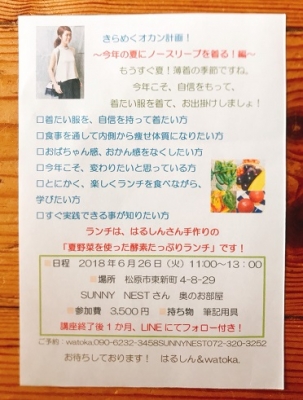 きらめくオカン計画!
～今年の夏にノースリーブを着る!編～
もうすぐ夏!薄着の季節ですね。
今年こそ、自信をもって、
着たい服を着て、お出掛けしましょ!
□着たい服を、自信を持って着たい方
□食事を通して内側から痩せ体質になりたい方
□おばちゃん感、おかん感をなくしたい方
□今年こそ、変わりたいと思っている方
□とにかく、楽しくランチを食べながら、
学びたい方
□すぐ実践できる事が知りたい方
ランチは、はるしんさん手作りの
「夏野菜を使った酵素たっぷりランチ」です!
■日程 2018年6月26日(火)11:00~13:00
■場所 松原市東新町4-8-29
SUNNY NESTさん 奥のお部屋
■参加費 3,500円 ■持ち物 筆記用具
講座終了後1か月、LINEにてフォロー付き!
ご予約:watoka.090-6232-3458SUNNYNEST072-320-3252
お待ちしております! はるしん&watoka.